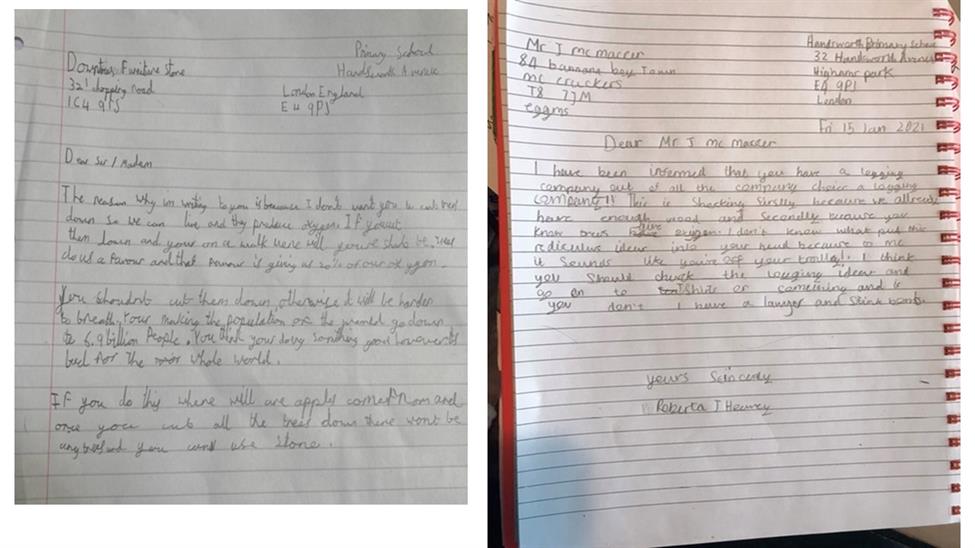 Downtows Furniture Store
321 chopping road
IC4 9TS
Primary School
Handsworth Avenue
London England
E4 9PJ
Dear Sir / Madam
The reason why im writing to you is because I dont want you to cut trees
down so we can live and they produce oxygen. If you cut
them down and your on a walk were will your shade be. Trees
do us a favour and that favour is giving us 20% of our oxygen.
You shoudnt cut them down otherwise it will be harder
to breath. Your making the population of the go down
to 6.9 billion People. You think your doing somthing good however its
bad for the whole world.
If you do this where will are apply come from and
once you cut all the trees down there wont be
any trees and you cant use stone.
Mr J mc maccer
84 bannana boy Town
mc cruckers
T8 7JM
eggms
Handsworth Primary School
32 Handsworth Avenue
Highams park
E4 9PJ
London
Fri 15 Jan 2021
Dear Mr J mc maccer
I have been informed that you have a logging
company out of all the company choice a logging
company!! This is Shocking firstly because we allready
have enough wood and Secondly because you
know trees give oxygen. I don't know what put this
rediculus idear into your head because to me
it sounds like you're off your trolley!. I think
you should chuck the logging idear and
go on to or something and if
you don't I have a lawyer and Stink bomb.
yours Scincerly
Roberta J Heavey